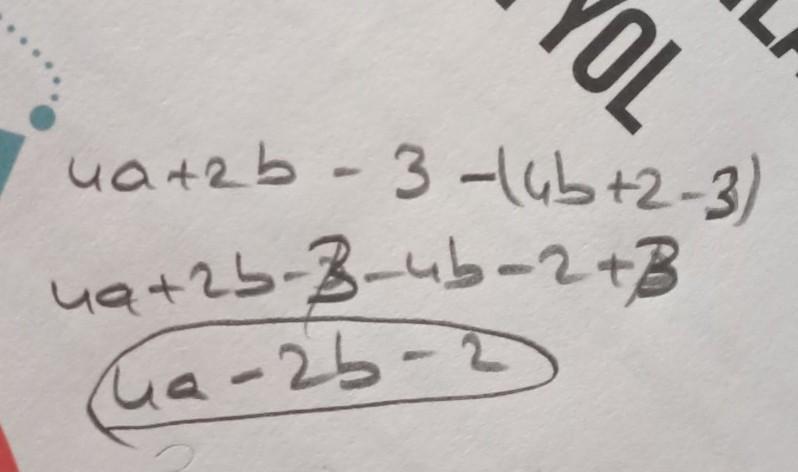 YOL
4a+2b - 3 -(4b+2-3)
4a+2b-3-4b-2+3
4a-2b-2